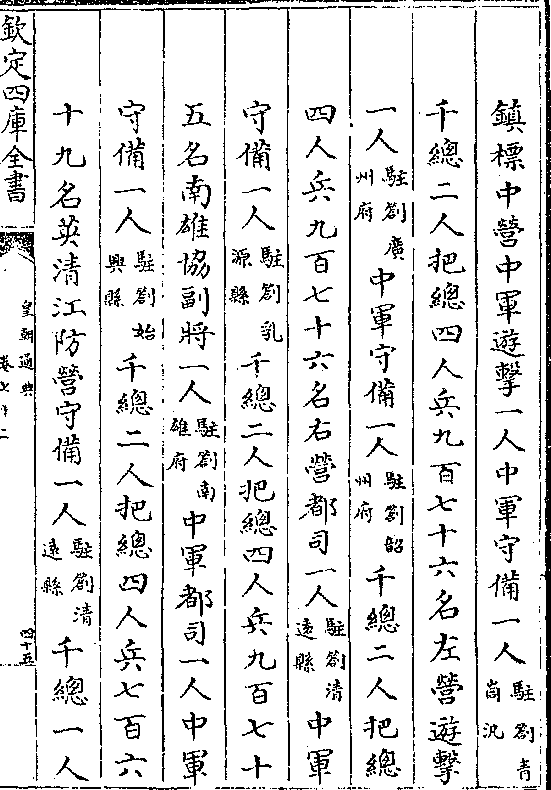 鎮標中營中軍遊擊一人中軍守備一人駐劄青崗汛
千總二人把總四人兵九百七十六名左營遊擊
一人駐劄廣州府中軍守備一人駐劄韶州府千總二人把總
四人兵九百七十六名右營都司一人駐劄清遠縣中軍
守備一人駐劄乳源縣千總二人把總四人兵九百七十
五名南雄協副將一人駐劄南雄府中軍都司一人中軍
守備一人駐劄始興縣千總二人把總四人兵七百六
十九名英清江防營守備一人駐劄清遠縣千總一人
欽定四庫全書
皇朝通典
卷七十二
四十五